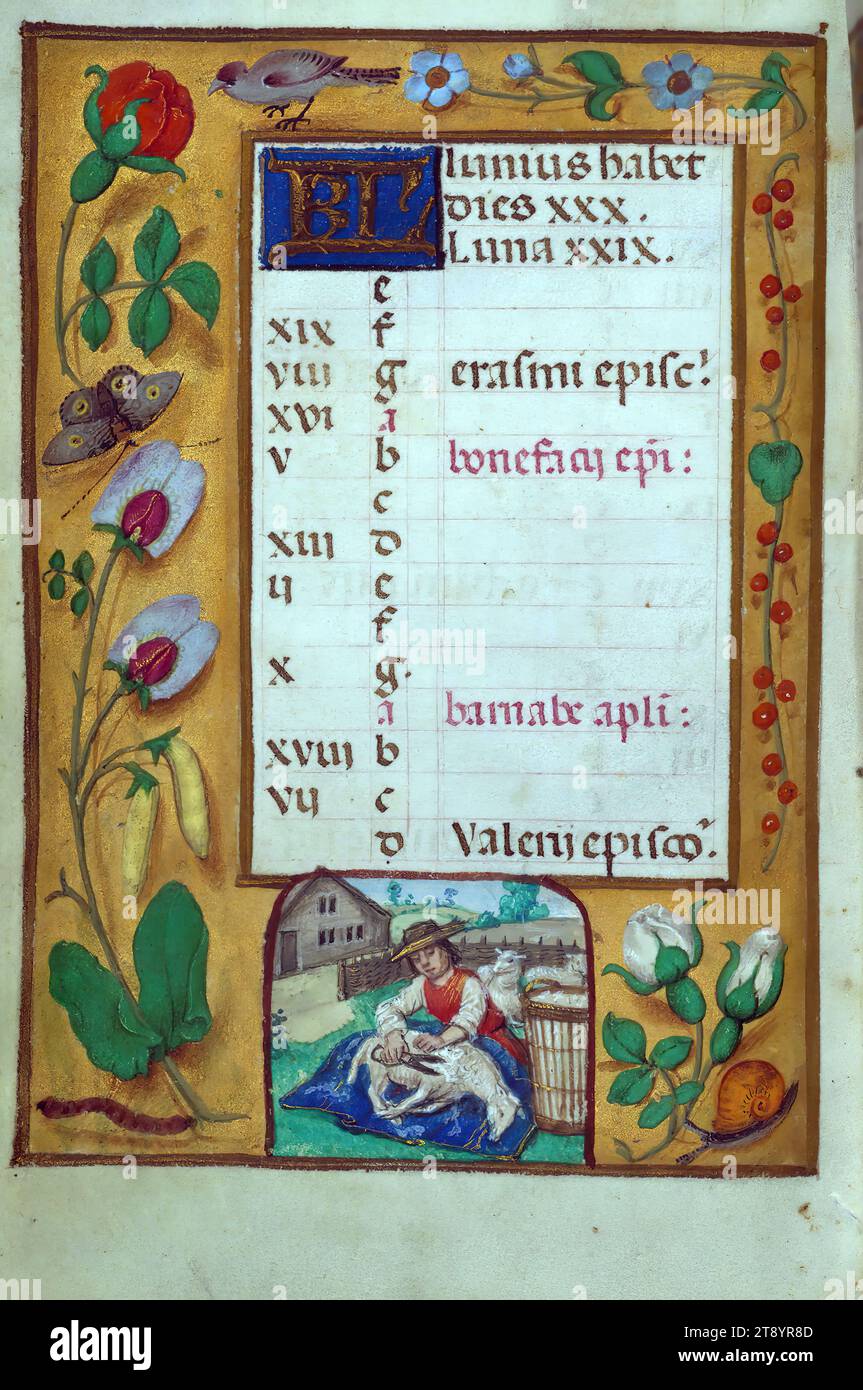 KL Iunius habet
dies xxx.
Luna xxix.
e
xix f
viii g erasmi episc'.
xvi a
v b bonefacij epi:
c
xiii d
ij e
f
x g.
a barnabe apli:
xviii b
vij c
d Valerij episco'.
alamy
Image ID: 2T8YR8D
www.alamy.com